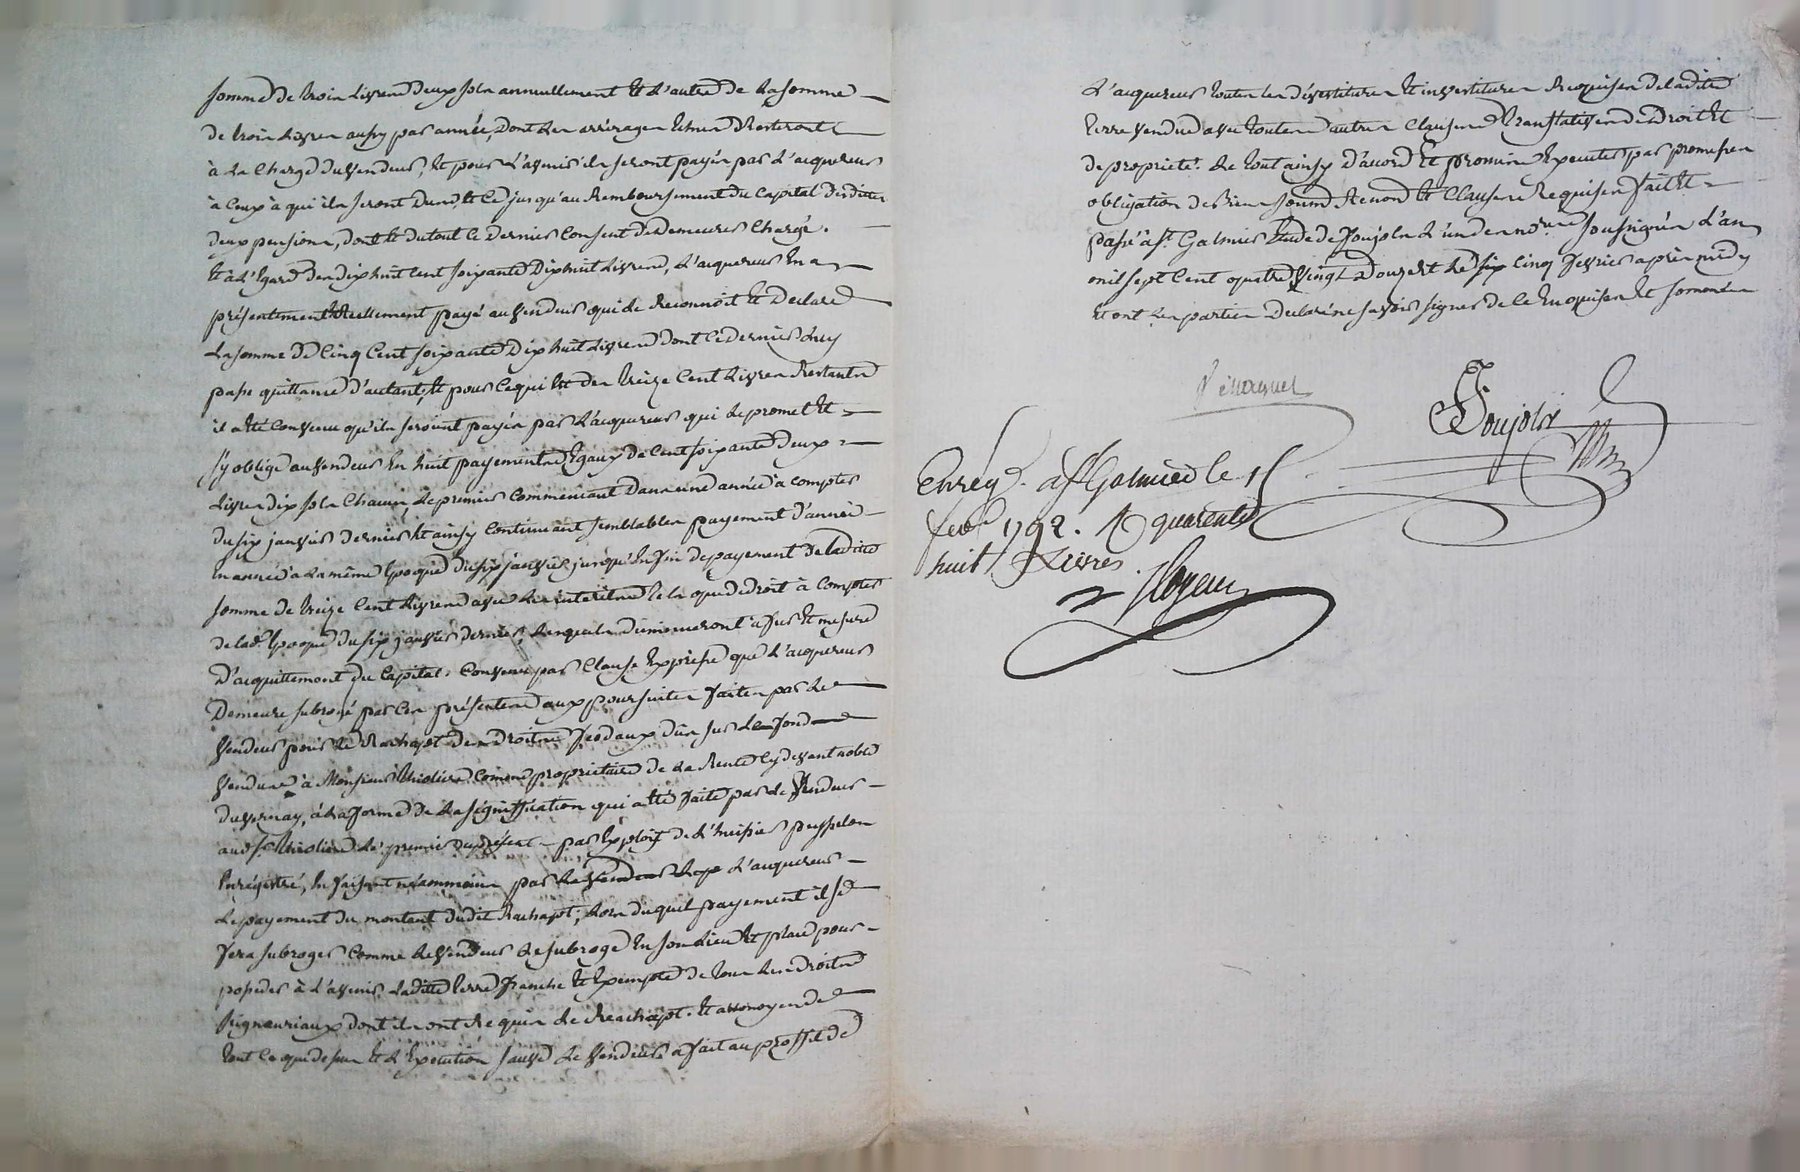 somme de trois livres deux sols annuellement et l'autre de la somme
de trois livres aussy par année, dont les arrérages échus resteront
à la charge du vendeur, et pour l'avenir ils seront payés par l'acquereur
à ceux à qui ils seront dûs, et ce jusqu'au remboursement du capital desdittes
deux pensions, dont et du tout ce dernier consent de demeurer chargé.
et à l'égard des dix huit cent soixante dix huit livres, l'acquereur en a
présentement réellement payé au vendeur qui le reconnoit et declare
la somme de cinq cent soixante dix huit livres dont ce dernier luy
passe quittance d'autant, et pour ce qui est des treize cent livres restantes
il a été convenu qu'ils seroient payés par l'acquereur qui le promet et
s'y oblige au vendeur en huit payements égaux de cent soixante deux
livres dix sols chacun, le premier commencant dans une année à compter
du six janvier dernier et ainsy continuant semblables payement d'année
en année à la même époque du six janvier jusqu'en fin de payement de ladite
somme de treize cent livres avec les interets tels que de droit à compter
de lad. époque du six janvier dernier, lesquels diminueront à fur et mesure
d'acquittement du capital. Convenu par clause expresse que l'acquereur
demeure subrogé par ces présentes aux poursuites faites par le
vendeur pour le rachapt des droits feodaux dûs sur le fond
vendu à Monsieur Thiolier comme proprietaire de la rente cy devant noble
du vernay, à la forme de la signiffication qui a été faite par le vendeur
aud. sr. Thiolier le premier du présent par exploit de l'huissier
enregistré, en faisant néammoins par l'acquereur
le payement du montant dudit rachapt; lors duquel payement il se
fera subroger comme le vendeur le subroge en son lieu et place pour
posseder à l'avenir ladite terre franche et exempte de tous les droits
seigneuriaux dont ils ont requis le rachapt. et au moyen de
tout ce que dessus et l'exécution sauve le vendeur a fait au proffit de
L'acquereur toutes les dévestitures et investitures requises de ladite
terre vendue avec toutes autres clauses translatives de droit et
de proprieté. Le tout ainsy d'accord et promis executer par promesses
obligation de biens soums. renon. et clauses requises fait et
passé à St. Galmier étude de Poujols l'un des notres. soussignés l'an
mil sept cent quatre vingt douze et le cinq fevrier après midy
et ont les parties declaré ne savoir signer de ce enquises et sommées
Poujols
Enreg. à St Galmier le 15
fevr 1792. R quarente
huit livres.